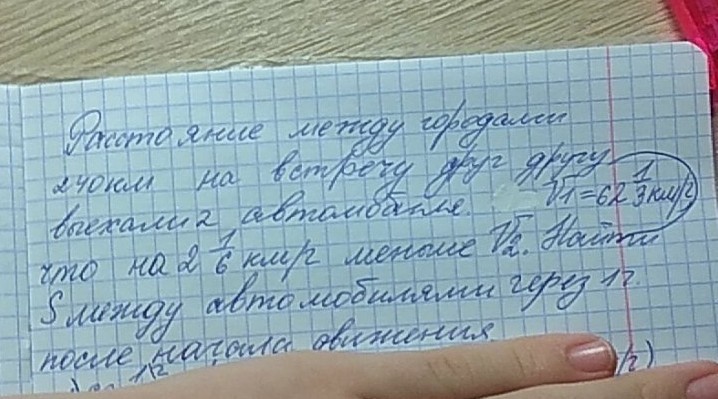 Расстояние между городами
240 км на встречу друг другу
выехали 2 автомобиля. V1 = 62 1/3 км/г
что на 2 1/6 км/г меньше V2. Найти
S между автомобилями через 1г.
после начала движения.